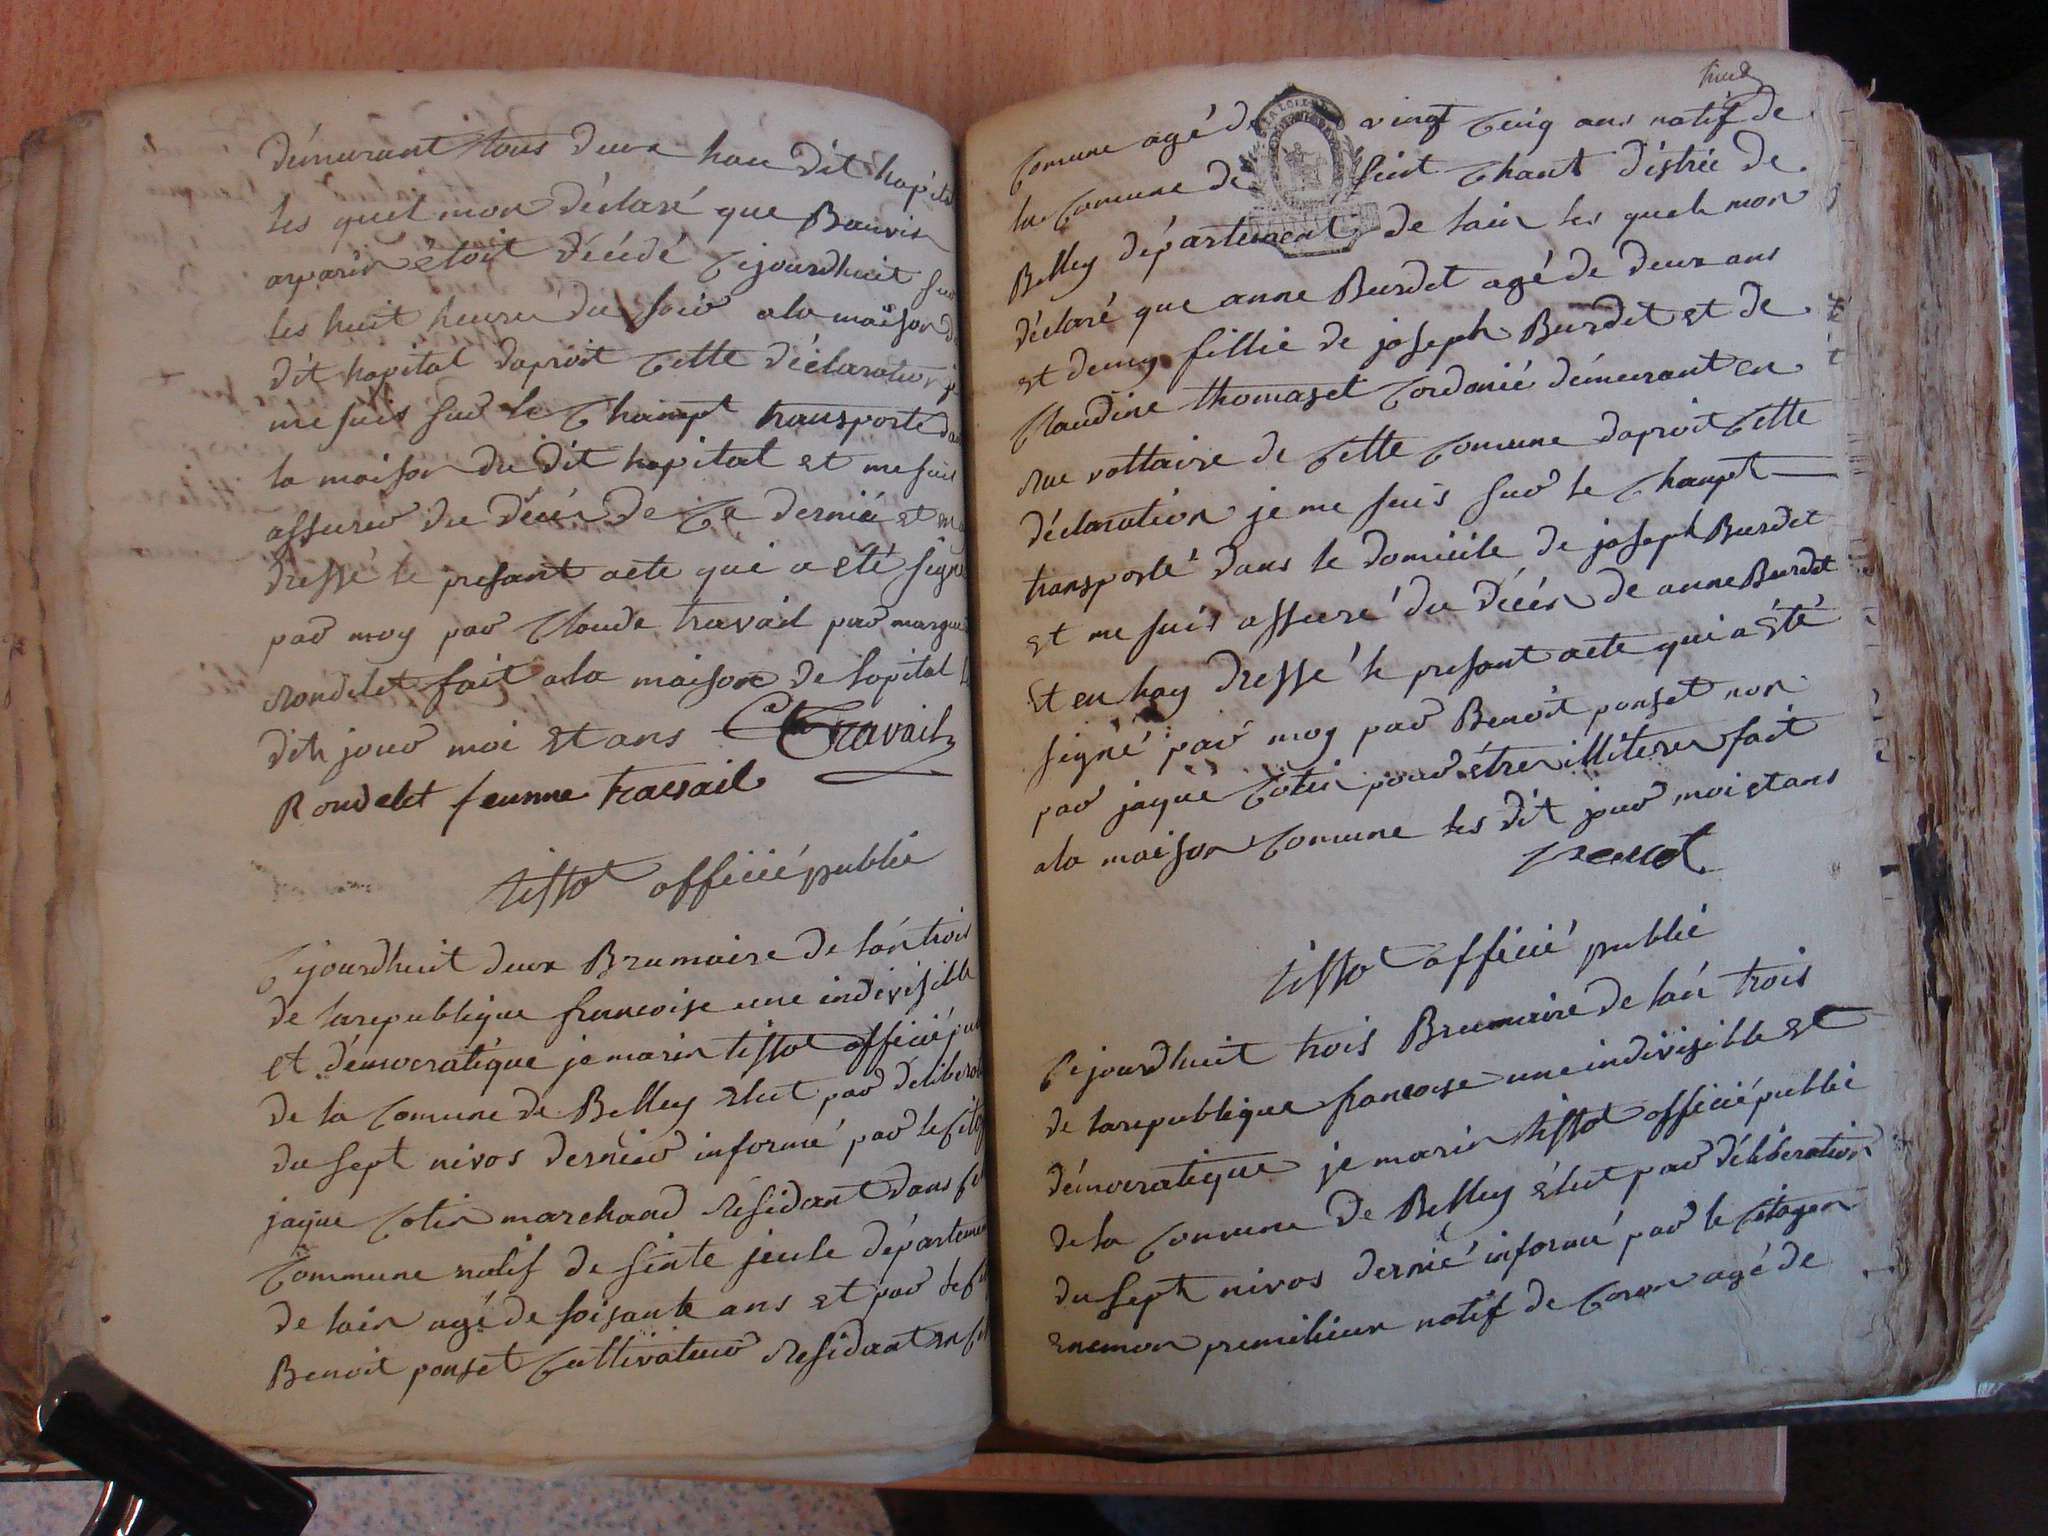 démurant tous deux hau dit hapital
les quel mon déclaré que Bauvis
aparin étoit décédé Cejourdhuit sur
les huit heures du soir a la maison du
dit hopital daproit Cette déclaration je
me suis sur le Champt transporte dans
la maison du dit hopital et me suis
assure du décés de Ce dernié et en
dressé le presant acte qui a eté signé
par moy par Claude travail par margue
Rondelet fait a la maison de lopital
dit jour moi et ans C Travail
Rondelet feumme travail
tissot officié publié
Cejourdhuit deux Brumaire de lan trois
de la republique francoise une indivisible
et démocratique je marin tissot officié pu
de la Comune de Belley elut par déliberati
du sept nivos dernier informé par le Cito
jaque Cotin marchand résidant dans
Commune natif de sinte jeule département
de lain agé de soisante ans et par le
Benoit ponset Cultivateur residant en
Comune agé de vingt Cinq ans natif de
la Comune de seint Chant distrée de
Belley département de lain les quels mon
déclaré que anne Burdet agé de deux ans
et demy fillie de joseph Burdet et de
Claudine thomaset Cordonié démurant en
Rue voltaire de Cette Comune daproit Cette
déclaration je me suis sur le Champt
transporté dans le domicile de joseph Burdet
et me suis assuré du décés de anne Burdet
Et en hay dressé le presant acte qui a été
signé par moy par Benoit ponset non
par jaque Cotin pour étre illiteres fait
a la maison Comune les dit jour moi et ans
tissot officié publié
Cejourdhuit trois Brumaire de lan trois
de la republique francoise une indivisible et
démocratique je marin tissot officié publié
de la Comune de Belley élut par déliberation
du sept nivos dernié informé par le Citoyen
enemon premilieux natif de Coron agé de